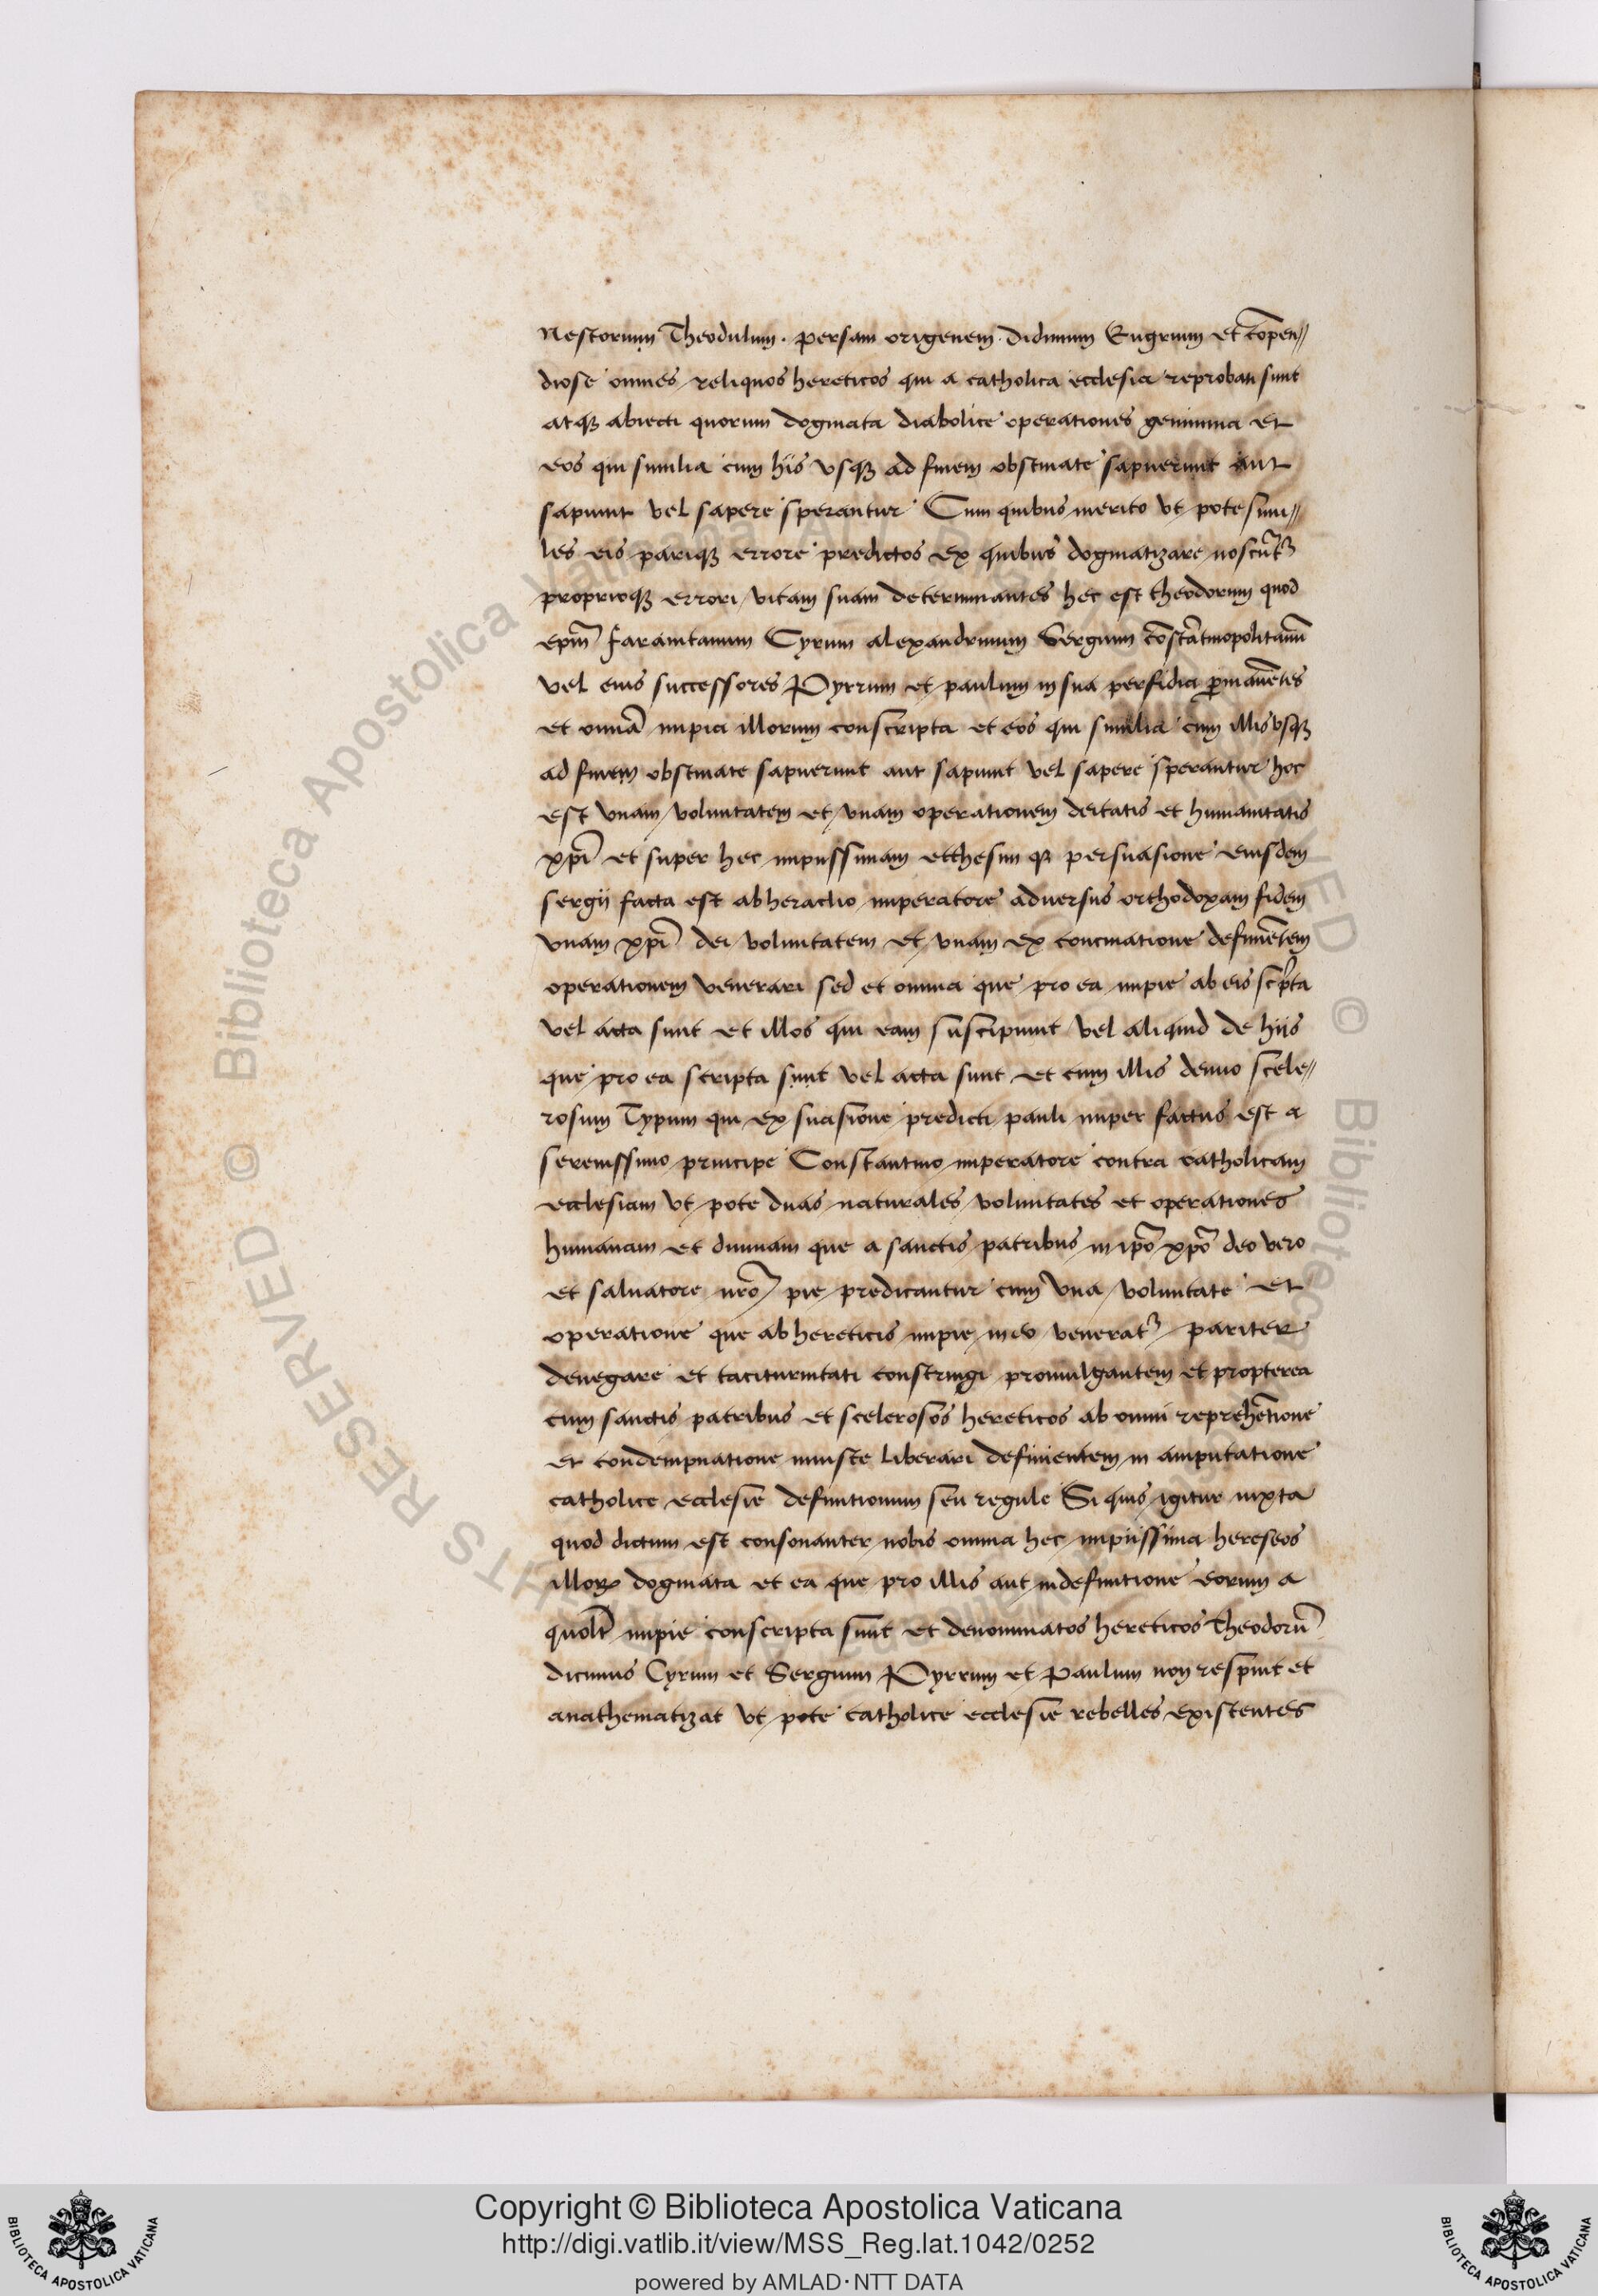 Nestorium Theodulum. persam origenem Didimum Eugrium et cõpen//
diose omnes reliquos hereticos qui a catholica ecclesia reprobati sunt
atqꝫ abiecti quorum dogmata diabolice operationes genimina et
eos qui similia cum his usqꝫ ad finem obstinate sapuerunt aut
sapiunt vel sapere sperantur Cum quibus merito ut pote simi//
les eis pariqꝫ errore predictos ex quibus dogmatizare noscũtr
proprioqꝫ errori vitam suam determinantes hec est theodorum quod
ep̃m faranitanum Cyrum alexandrinum Sergium cõstãtinopolitanũ
vel eius successores Pyrrum et paulum in sua perfidia ꝑmanẽtes
et omiã impia illorum conscripta et eos qui similia cum illis usqꝫ
ad finem obstinate sapuerunt aut sapiunt vel sapere sperantur hoc
est unam voluntatem et unam operationem deitatis et humanitatis
xp̃i et super hec impiissimam ecthesim qꝫ persuasione eiusdem
sergij facta est ab heraclio imperatore adversus orthodoxam fidem
unam xp̃i dei voluntatem et unam ex concinatione definiẽtem
operationem venerari sed et omnia que pro ea impie ab eis scp̃ta
vel acta sunt et illos qui eam suscipiunt vel aliquid de hijs
que pro ea scripta sunt vel acta sunt et cum illis denuo scele//
rosum Typum qui ex suasione predicti pauli nuper factus est a
serenissimo principe Constantino imperatore contra catholicam
ecclesiam ut pote duas naturales voluntates et operationes
humanam et divinam que a sanctis patribus in ip̃o xp̃o deo vero
et salvatore nr̃o pie predicantur cum una voluntate et
operatione que ab hereticis impie in eo veneratr pariter
denegare et taciturnitati constringi promulgantem et propterea
cum sanctis patribus et scelerosos hereticos ab omni reprehẽtione
et condempnatione iniuste liberari definientem in amputatione
catholice ecclesie definitionum seu regule Si quis igitur iuxta
quod dictum est consonanter nobis omnia hec impiissima hereseos
illorꝝ dogmata et ea que pro illis aut indefinitione eorum a
quolt̃ impie conscripta sunt et denominatos hereticos Theodorũ
dicimus Cyrum et Sergium Pyrrum et Paulum non respuit et
anathematizat ut pote catholice ecclesie rebelles existentes
Copyright © Biblioteca Apostolica Vaticana
http://digi.vatlib.it/view/MSS_Reg.lat.1042/0252
powered by AMLAD·NTT DATA